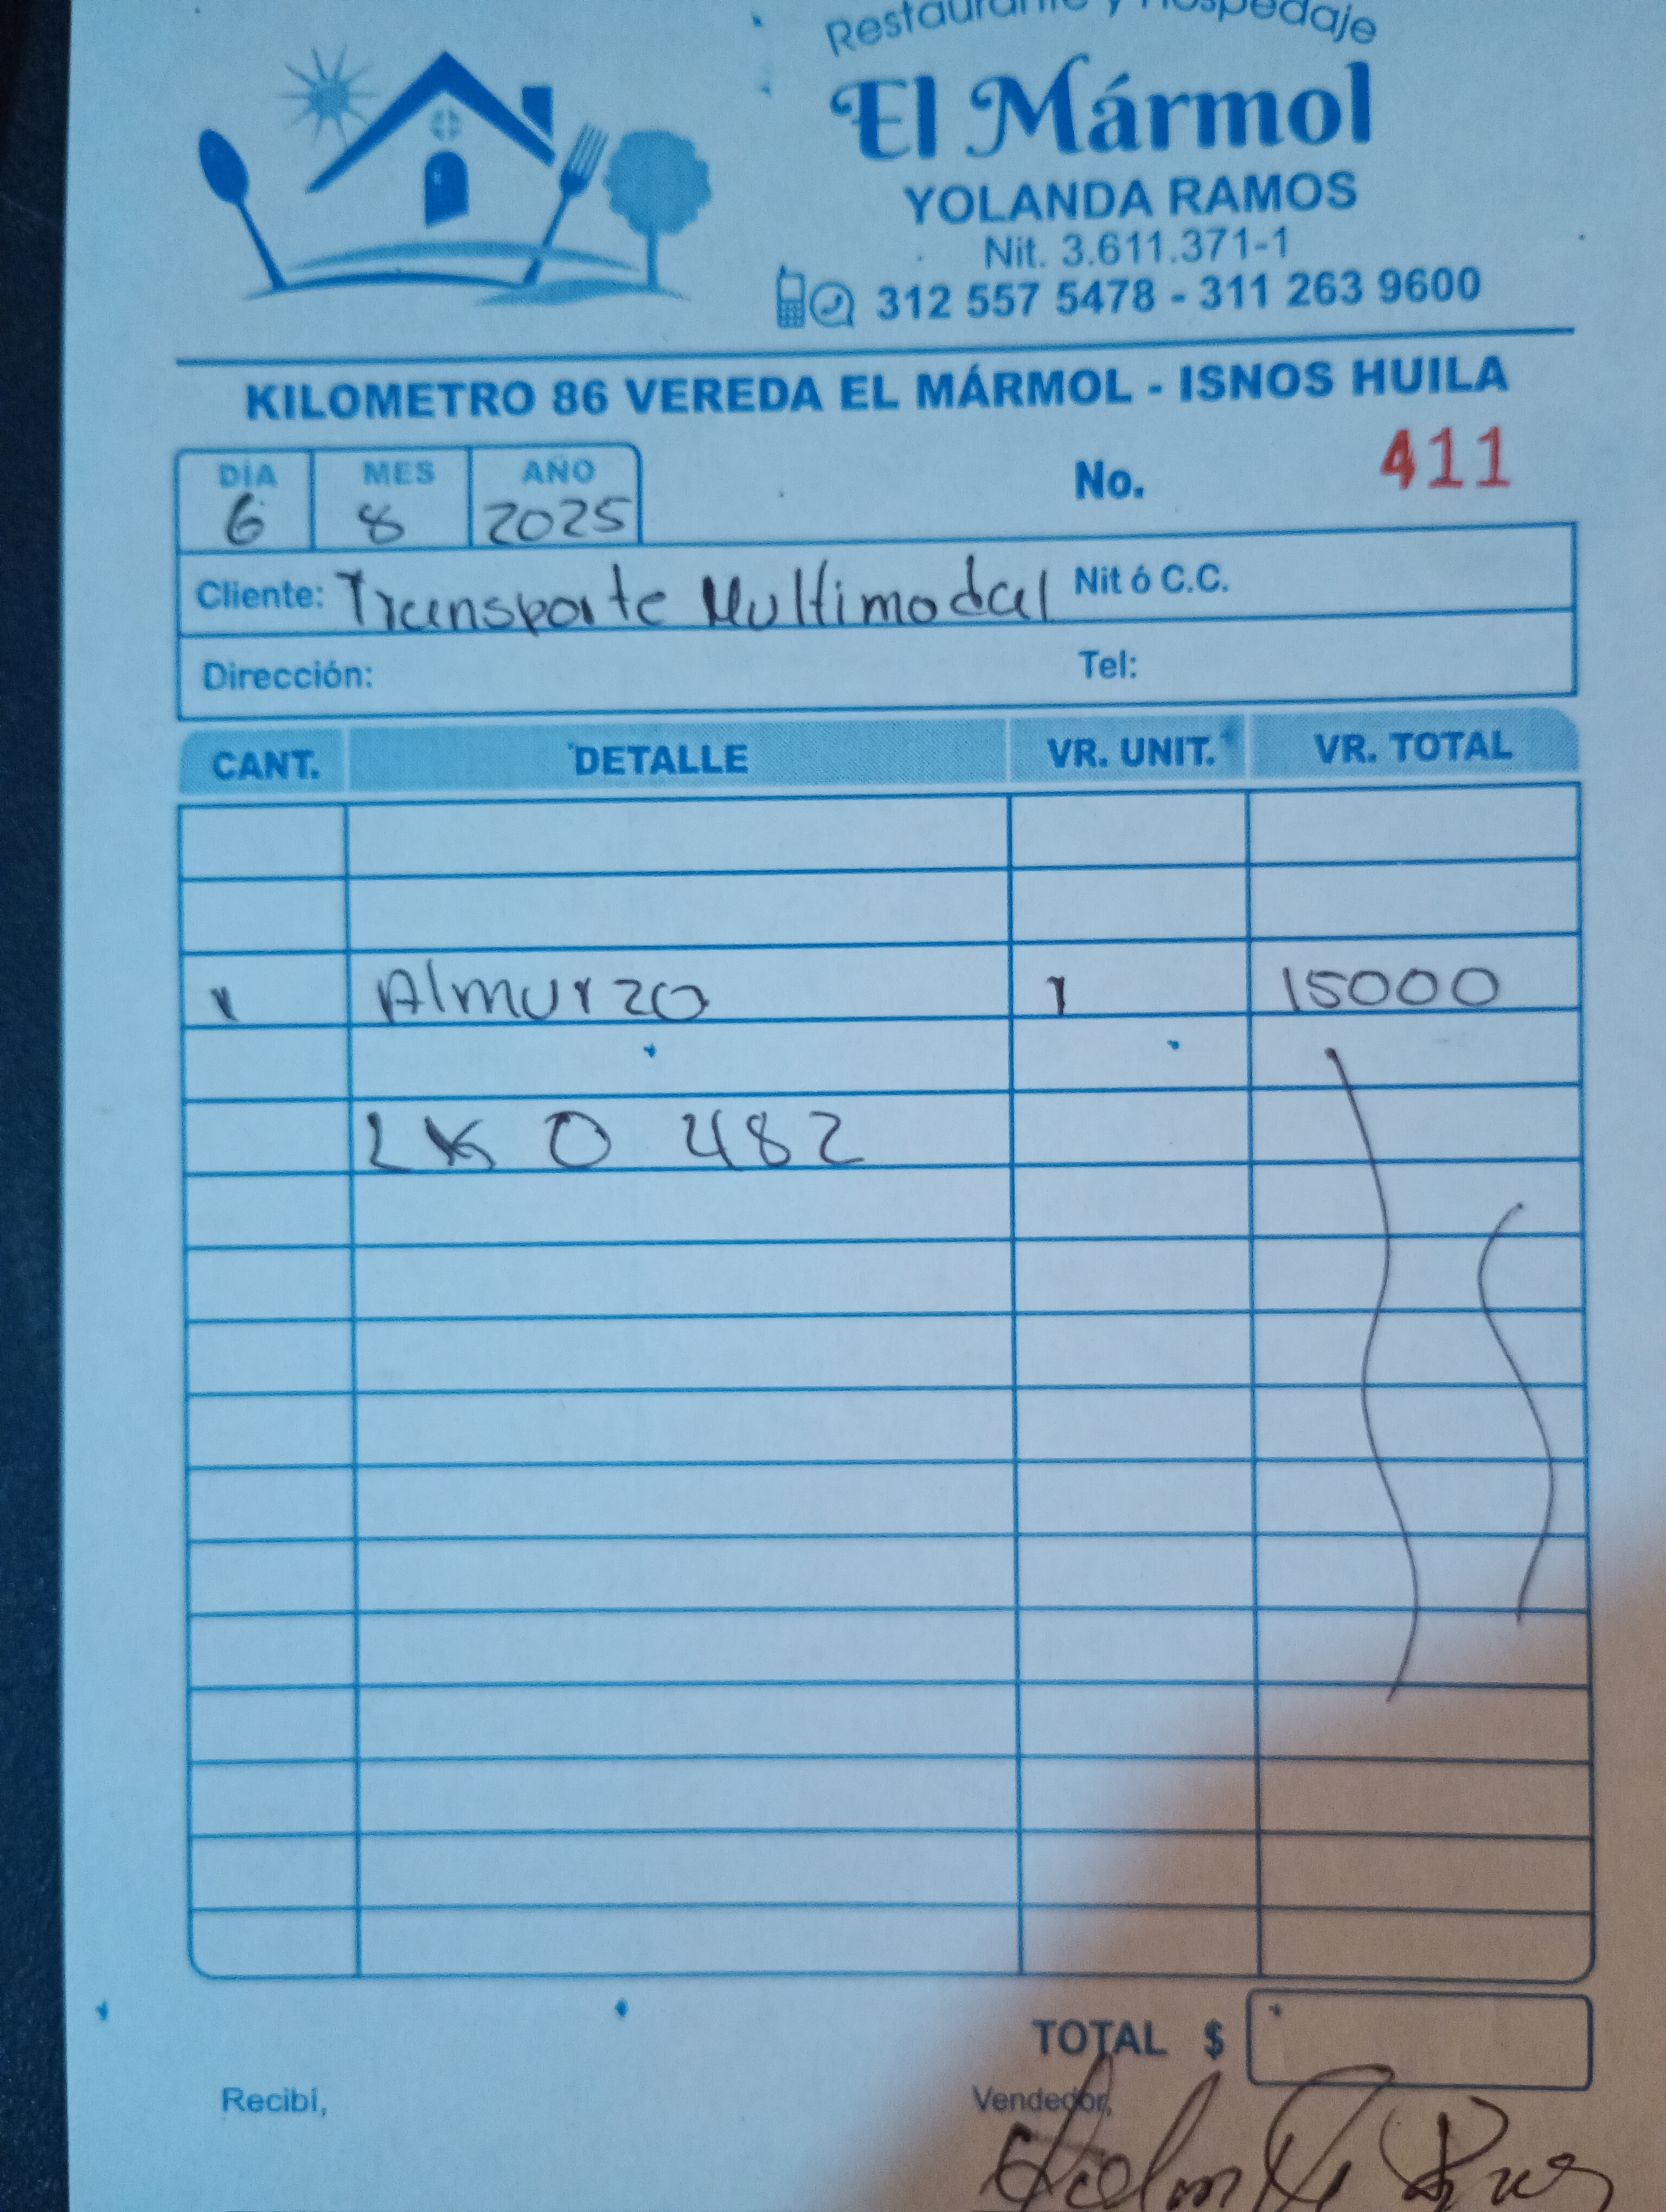 Restaurante y Hospedaje
El Mármol
YOLANDA RAMOS
Nit. 3.611.371-1
312 557 5478 - 311 263 9600
KILOMETRO 86 VEREDA EL MÁRMOL - ISNOS HUILA
DÍA MES AÑO
6 8 2025
No. 411
Cliente: Transporte Multimodal Nit ó C.C.
Dirección: Tel:
CANT. DETALLE VR. UNIT. VR. TOTAL
1 Almurzo 1 15000
LKO 482
TOTAL $
Recibí, Vendedor,